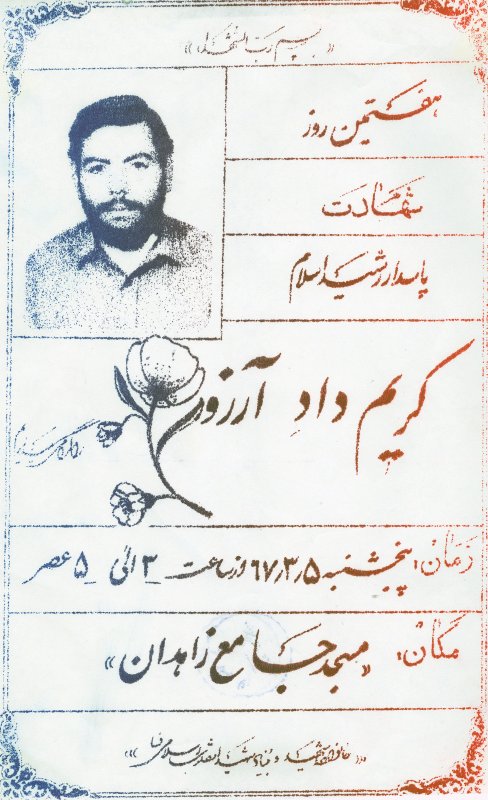 «بسم رب الشهدا»
هفتمین روز
شهادت
پاسدار رشید اسلام
کریم داد آرزو
را گرامی میداریم
زمان: پنجشنبه ۶۷٫۳٫۵ از ساعت ۳ الی ۵ عصر
مکان: «مسجد جامع زاهدان»
«خانواده شهید و بنیاد شهید انقلاب اسلامی